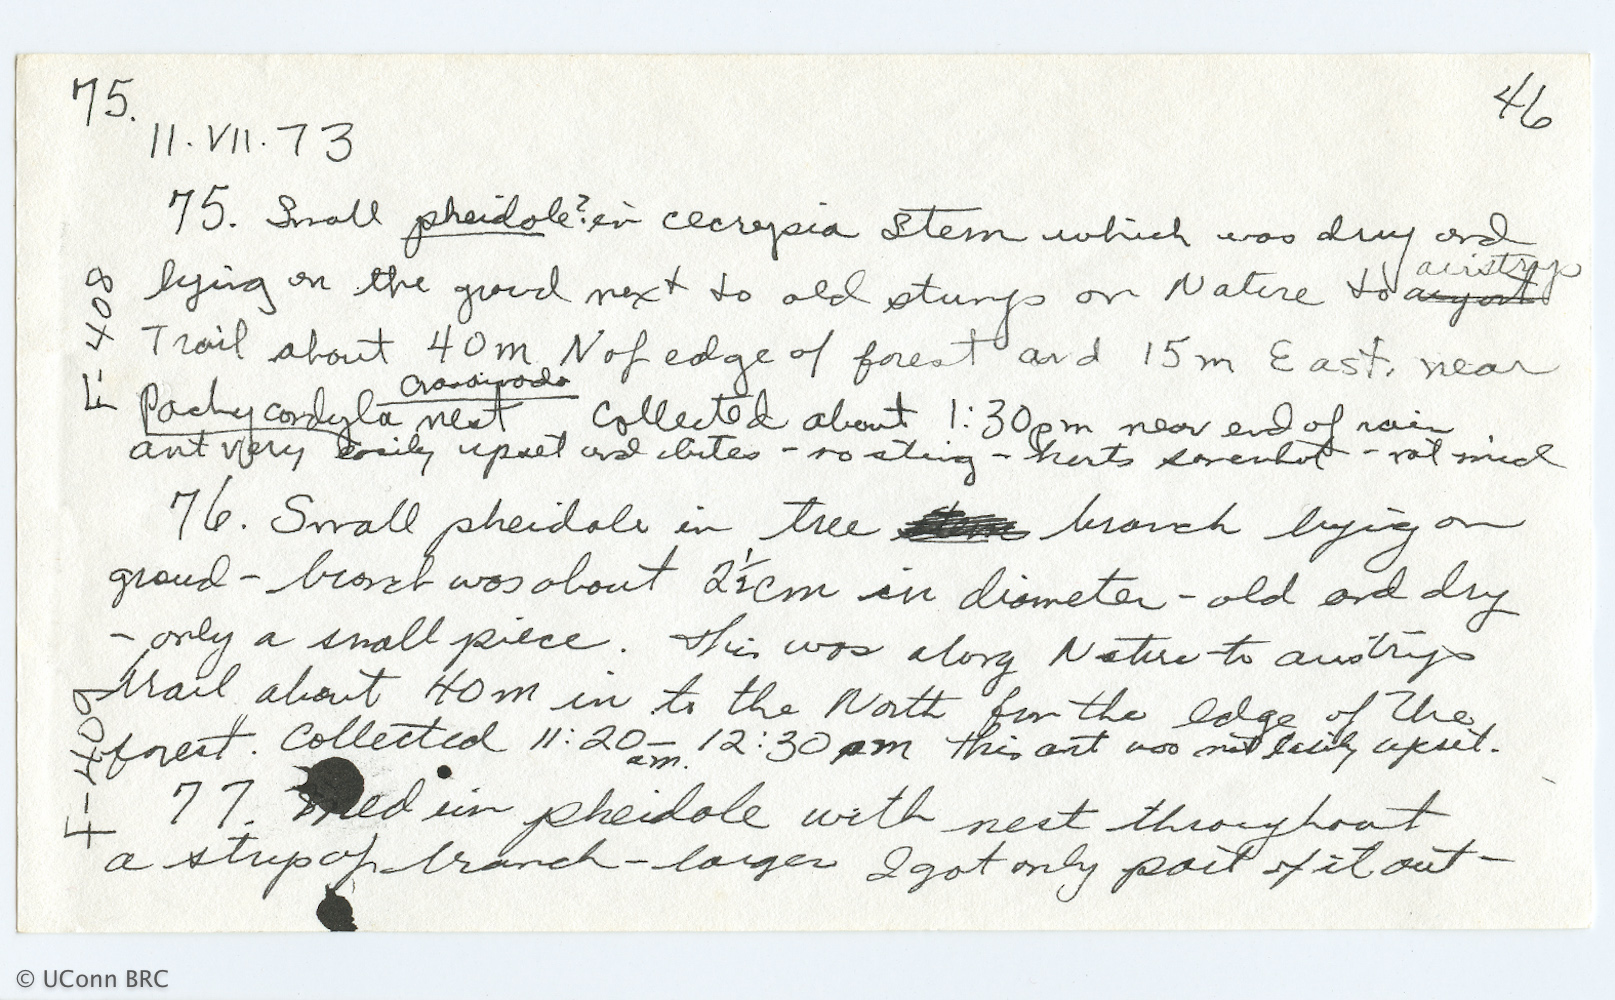 75.
46
11.VII.73
75. Small pheidole? in cecropia stem which was dry and
airstrip
lying on the groud next to old stump on Nature to airport
F-408
Trail about 40m N of edge of forest and 15m East, near
Pachycondyla crassinoda nest Collected about 1:30pm near end of rain
ant very easily upset and bites - no sting - hurts somewhat - not much
76. Small pheidole in tree branch lying on
groud - branch was about 2½cm in diameter - old and dry
- only a small piece. This was along Nature to airstrip
trail about 40m in to the North from the edge of the
F-409
forest. Collected 11:20 am - 12:30 pm This ant was not easily upset.
77. Medium pheidole with nest throughout
a strip of branch - larger I got only part of it out -
© UConn BRC